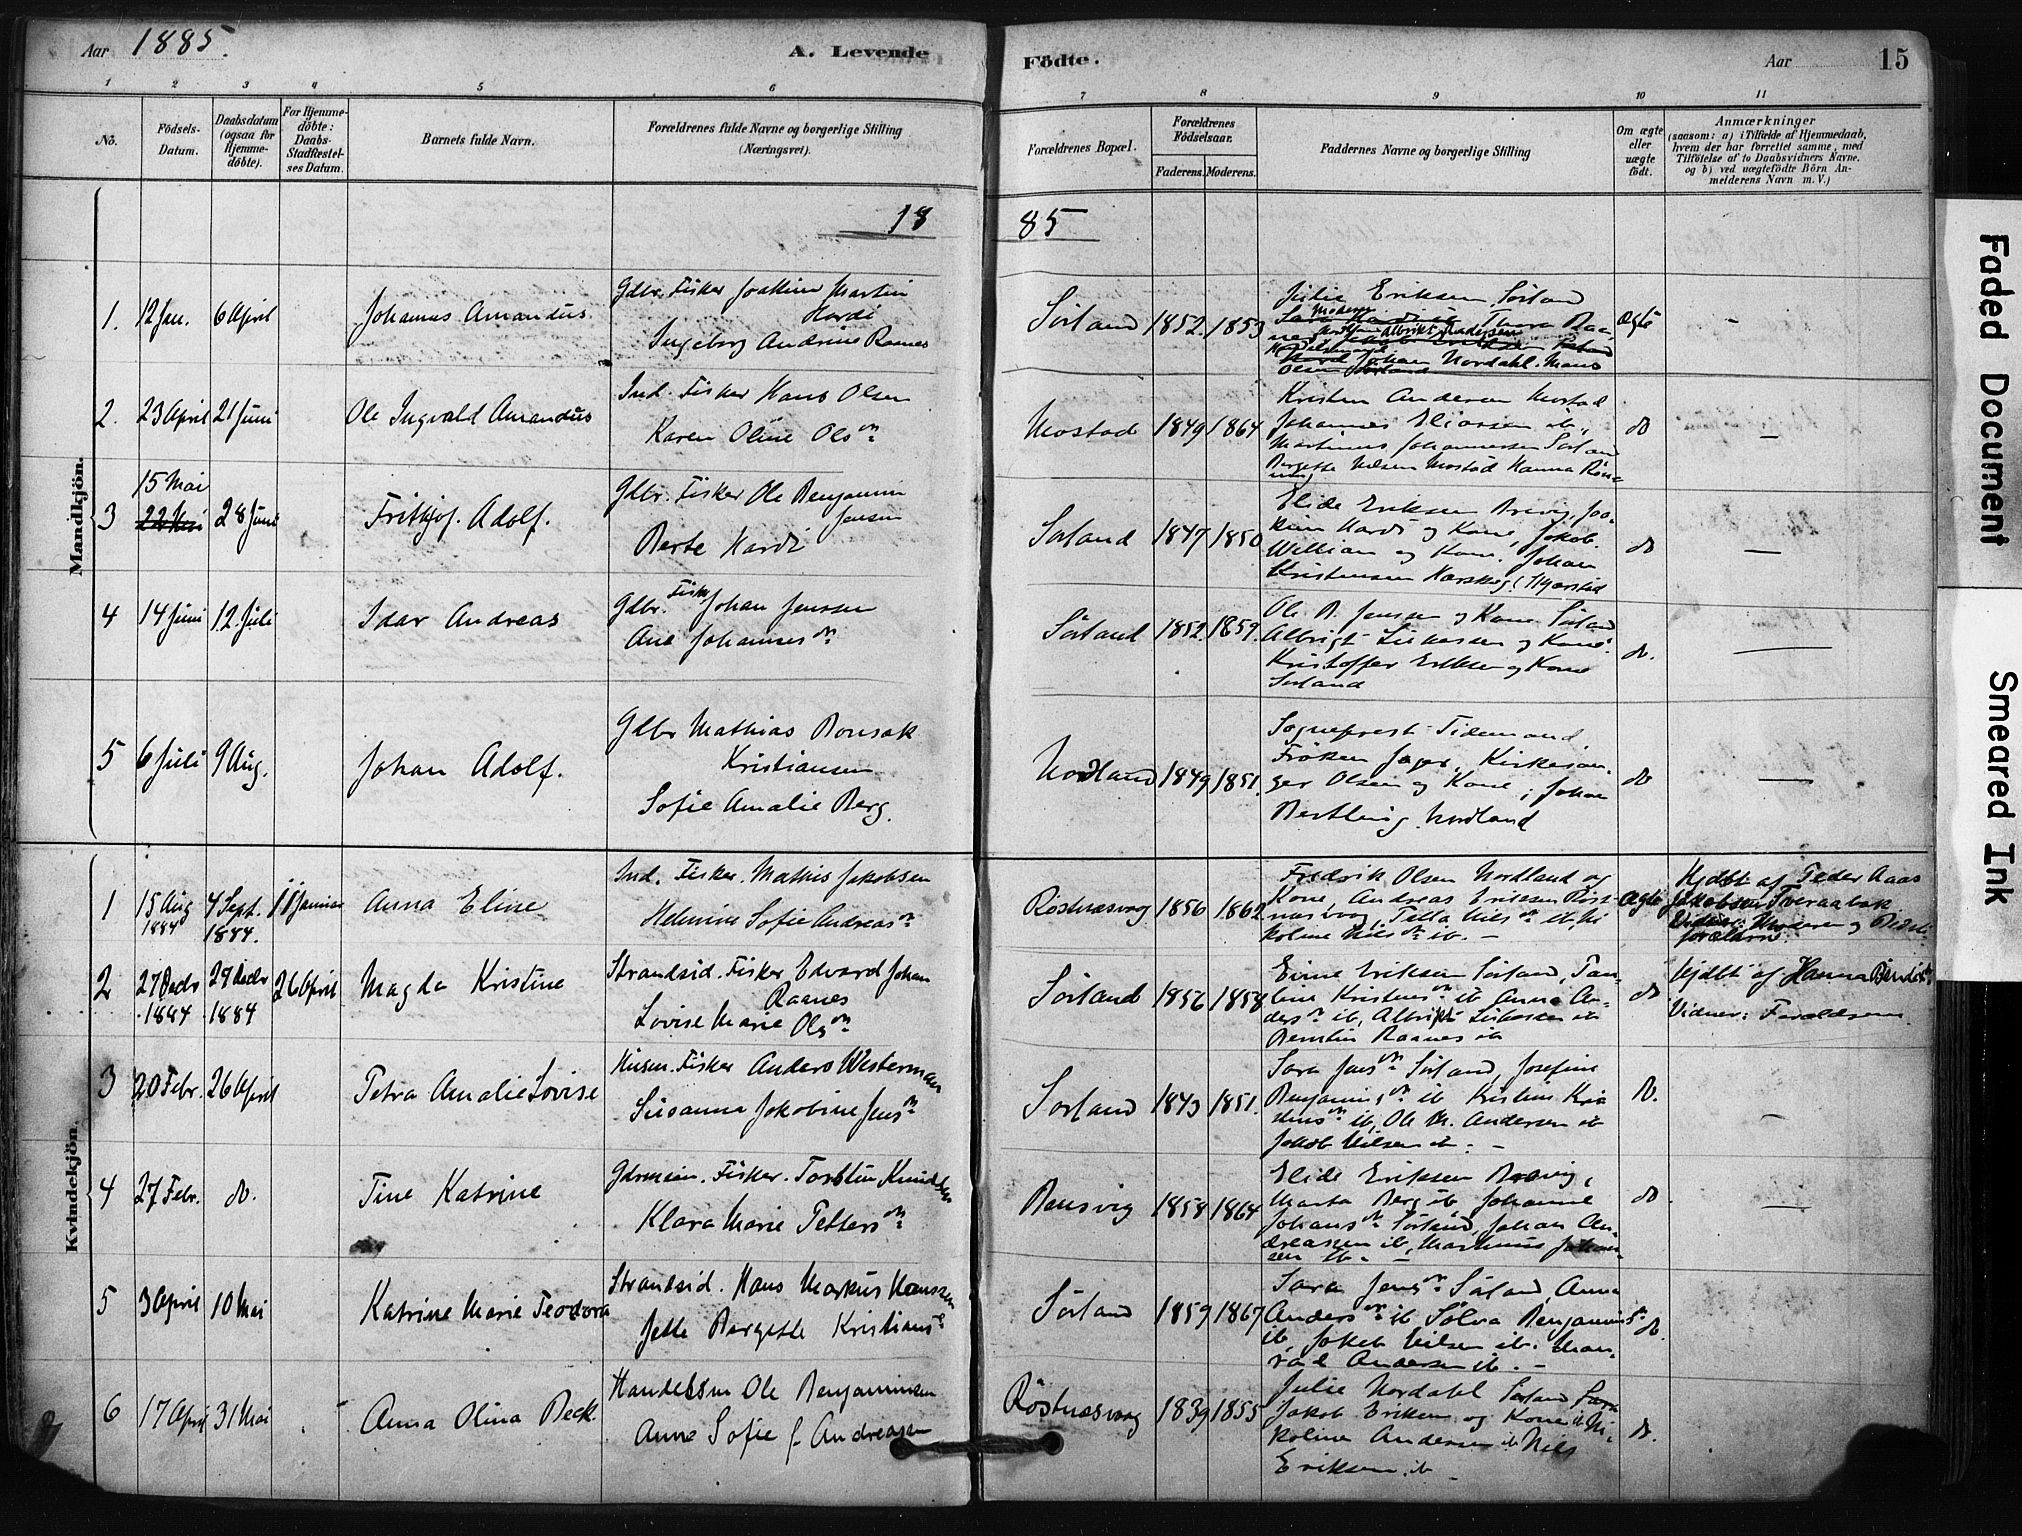 Aar 1885.
A. Levende
Födte.
Aar
15
1 2 3 4 5 6
7 8 9 10 11
No.
Födsels-
Datum.
Daabsdatum
(ogsaa for
Hjemme-
döbte).
For Hjemme-
döbte:
Daabs-
Stadfæstel-
ses Datum.
Barnets fulde Navn.
Forældrenes fulde Navne og borgerlige Stilling
(Næringsvei).
Forældrenes Bopæl.
Forældrenes
Födselsaar.
Faderens. Moderens.
Faddernes Navne og borgerlige Stilling
Om ægte
eller
uægte
födt.
Anmærkninger
(saasom: a) i Tilfælde af Hjemmedaab,
hvem der har forrettet samme, med
Tilföielse af to Daabsvidners Navne.
og b) ved uægtefödte Börn An-
melderens Navn m. V.)
18
85
Mandkjön.
1. 12 Jan. 6 April
Johannes Amandus
Gdbr. Fisker Joakim Martin
Hardi
Ingeborg Andrine Raanes
Sörland 1852 1853
Julie Eriksen Sörland
Ægte
2. 23 April 21 Juni
Ole Ingvald Amandus
Ind. Fisker Hans Olsen
Karen Oline Olsn
Mostad 1849 1864
Kristen Andersen Mostad
Johannes Eliassen ib.,
Martinus Johannessen Sörland
Bergette Nilsen Mostad Hanna Rön=
do
15 Mai
3 22 Mai 28 Juni
Fritkjof. Adolf.
Gdbr. Fisker Ole Benjamin
Jensen
Berte Hardi
Sörland 1847 1850
Elide Eriksen Brevig, Joa-
kim Hardi og Kone, Jakob
William og Kone, Johan
Kristensen
do
4 14 Juni 12 Juli
Idar Andreas
Gdbr. Fisker Johan Jenssen
Ane Johannesdn
Sörland 1852 1859.
Ole B. Jenssen og Kone Sörland
Albrigt Lukassen og Kone.
Kristoffer Eriksen og Kone
Sörland
do.
5 6 Juli 9 Aug.
Johan Adolf.
Gdbr Mathias Bonsak
Kristiansen
Sofie Amalie Berg.
Nordland 1849 1851.
Sogneprest Tidemand,
Fröken Jager, Kirkesan-
ger Olsen og Kone, Johan
Bertling. Nordland
do
Kvindekjön.
1 15 Aug 1884 4 Sept. 1884. 11 Januar
Anna Eline
Ind. Fisker. Mathis Jakobsen
Helmine Sofie Andreasdn
Röstnæsvaag 1856 1862
Fredrik Olsen Nordland og
Kone, Andreas Eriksen Röst-
næsvaag, Petra Nilsdn ib, Ni
koline Nilsdn ib. -
Ægte
Hjdbt af Peder Aaas
Jakobsen Tveraabak
Vidner: Moderen og Bedste
forældrene.
2 27 Decbr 1884 29 Decbr 1884 26 April
Magda Kristine
Strandsid. Fisker Edvard Johan
Raanes
Lovise Marie Olsdn
Sörland 1856 1858
Eirine Eriksen Sörland, Pau-
line Kristensdn ib Anna An-
dersdn ib, Albrikt Lukassen ib
Raanes ib
do
Hjdbt af Hanna
Vidner: Forældrene.
3 20 Febr. 26 April
Petra Amalie Lovise
Husm. Fisker Anders Westerman
Susanna Jakobine Jensdn
Sörland 1843 1851.
Sara Jensdn Sörland, Josefine
Benjaminsdn ib Kristine Kris
tensdn ib, Ole M. Andersen ib
Jakob Nilsen ib. -
Do.
4 27 Febr. do.
Tine Katrine
Gdrmein. Fisker. Torstein Knudsen
Klara Marie Pettersdn
Bensvig 1858 1864
Elide Eriksen Brevig,
Marta Berg ib Johanne
Johansdn Sörland, Johan An-
dreassen ib, Martinus Johan-
sen ib. -
do
5 3 April 10 Mai
Katrine Marie Teodora
Strandsid. Hans Markus Hanssen
Jette Bergette Kristiansd
Sörland 1859 1867
Sara Jensdn Sörland, Anna
Andersdn ib Sölva Benjaminsdn
ib, Jakob Nilsen ib. Kon-
rad Andersen ib. -
do.
6 17 April 31 Mai
Anna Olina Beck.
Handelsm Ole Benjaminsen
Anne Sofie f. Andreasen
Röstnæsvaag 1839 1855
Julie Nordahl Sörland Sara
Jakob Eriksen og Kone ib Ni-
koline Andersen ib Nils
Eriksen ib -
do.
Faded Document
Smeared Ink